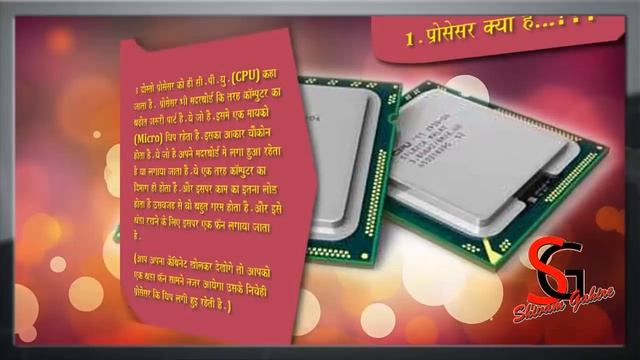 1 . प्रोसेसर क्या है...
। दोस्तो प्रोसेसर को ही सी . पी . यु . (CPU) कहा
जाता है . प्रोसेसर भी मदरबोर्ड कि तरह कॉम्पुटर का
बहोत जरुरी पार्ट है . ये जो है . इसमे एक मायक्रो
(Micro) चिप रहेता है . इसका आकार चौकोन
होता है . ये जो है अपने मदरबोर्ड मे लगा हुआ रहेता
है या लगाया जाता है . ये एक तरह कॉम्पुटर का
दिमाग ही होता है . और इसपर काम का इतना लोड
होता है इसवजह से वो बहुत गरम होता है . और इसे
थंडा रखने के लिए इसपर एक फॅन लगाया जाता
है .
(आप अपना कॅबिनेट खोलकर देखोगे तो आपको
एक बडा फॅन सामने नजर आयेगा उसके निचेही
प्रोसेसर कि चिप लगी हुइ रहेती है . )
SG
Shivam Gabire